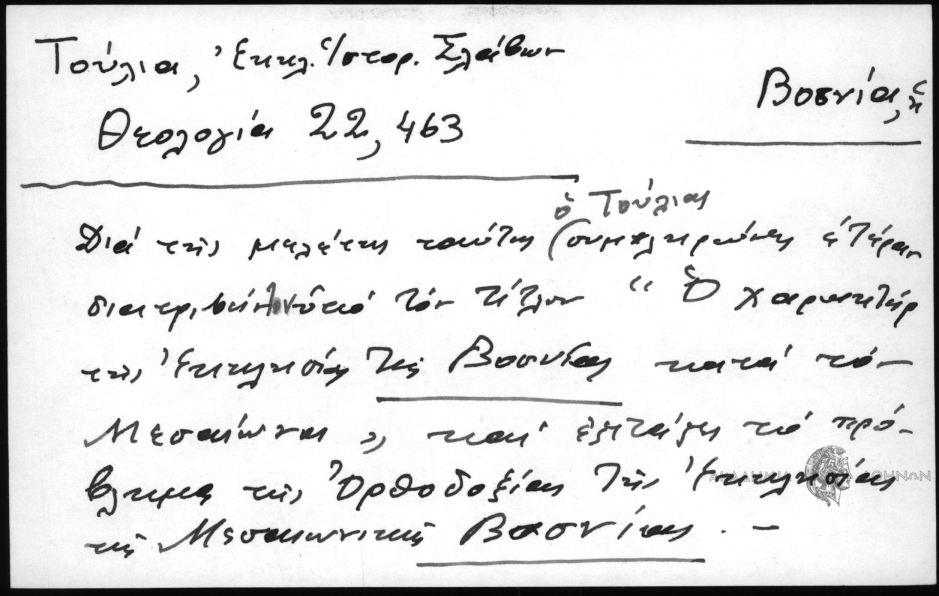 Τούλια, Ἐκκλ. Ἱστορ. Σλάβων
Βοσνία, ἡ
Θεολογία 22, 463
ὁ Τούλιας
Διά τῆς μελέτης ταύτης συμπληρώνει ἑτέραν
διατριβήν ὑπό τόν τίτλον "Ὁ χαρακτήρ
τῆς Ἐκκλησίας τῆς Βοσνίας κατά τό-
Μεσαίωνα", καί ἐξετάζει τό πρό-
βλημα τῆς Ὀρθοδοξίας τῆς Ἐκκλησίας
τῆς Μεσαιωνικῆς Βοσνίας. -